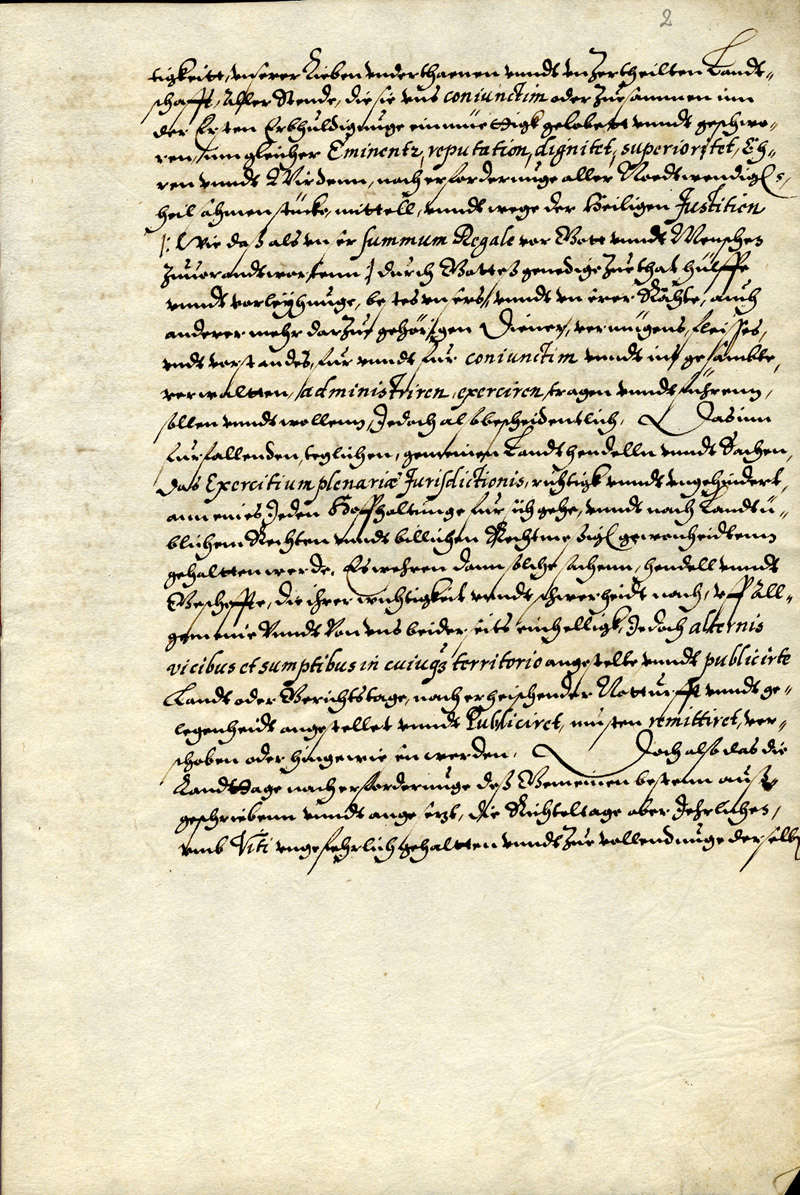 2
tigkeitt, vnserer Lieben vnderthaenen vnndt vnzertheilten Landt-
schafft, Aller Stende, die sie vns coniunctim oder zusammen inn
der Ersten Erbhuldigunge einmüettigk gelobett vnndt geschwo-
ren, inn gleicher Eminentz, reputation, dignitet, superioritet, Eh-
ren vnndt Wirdenn, nach erforderunge aller Noedtwendig
heilsahmen stücke, mittell, vnndt wege der Heiligen Justitien
/: Wie daß als vnser summum Regale vor Gott vnndt Menschen
Zuuorandtwortenn :/ durch Gottes genedige Zuethat hülffe
vnndt vorleyhunge, bestes vnsers vnndt vnserer Rähte, auch
anderer mehr darzue gehörigen Diener, vermügens, fleisses,
vndt vorstandes, für vnndt für coniunctim vnndt ins gesambte
verwaltten, administriren, exerciren, tragen vnndt führenn,
sollen vnndt wollenn, Jedoch also bescheidentlich, Das inn
fürfallenden, teglichen, gemeinen Landthendelln vnndt Sachen,
das Exercitium plenariæ Jurisdictionis, ruhtigk vnndt vngehindert,
ann eines Jeden Hoffhaltunge für sich gehe, vnndt nach Landtü-
blichem Rechten vnndt billichen Rechtmeßig gewonheidtenn
gehaltten werde, Es wehren dann solche sachenn, hendell vnndt
Gescheffte, die ihrer wichtigkeit vnndt schwerheidt nach, vff All-
gemeine Vnndt Von vns beiderseits einhelligk, Jedoch alternis
vicibus et sumptibus in cuiusq3 territorio angestelte vnndt publicirte
Landt oder Gerichtstage, nach erheischender Notturfft vnndt ge-
legenheidt angestellet vnndt Publiciret, müsten remittiret, ver-
schoben oder hingewiesen werden, Doch also das die
Landttage nach erforderunge deß Gemeinen bestenn auß-
geschriebenn vnndt angesetzt, die Richteltage aber Jehrliches,
vmb Viti vngefehrlich gehaltten vnndt zue vollendunge derselb